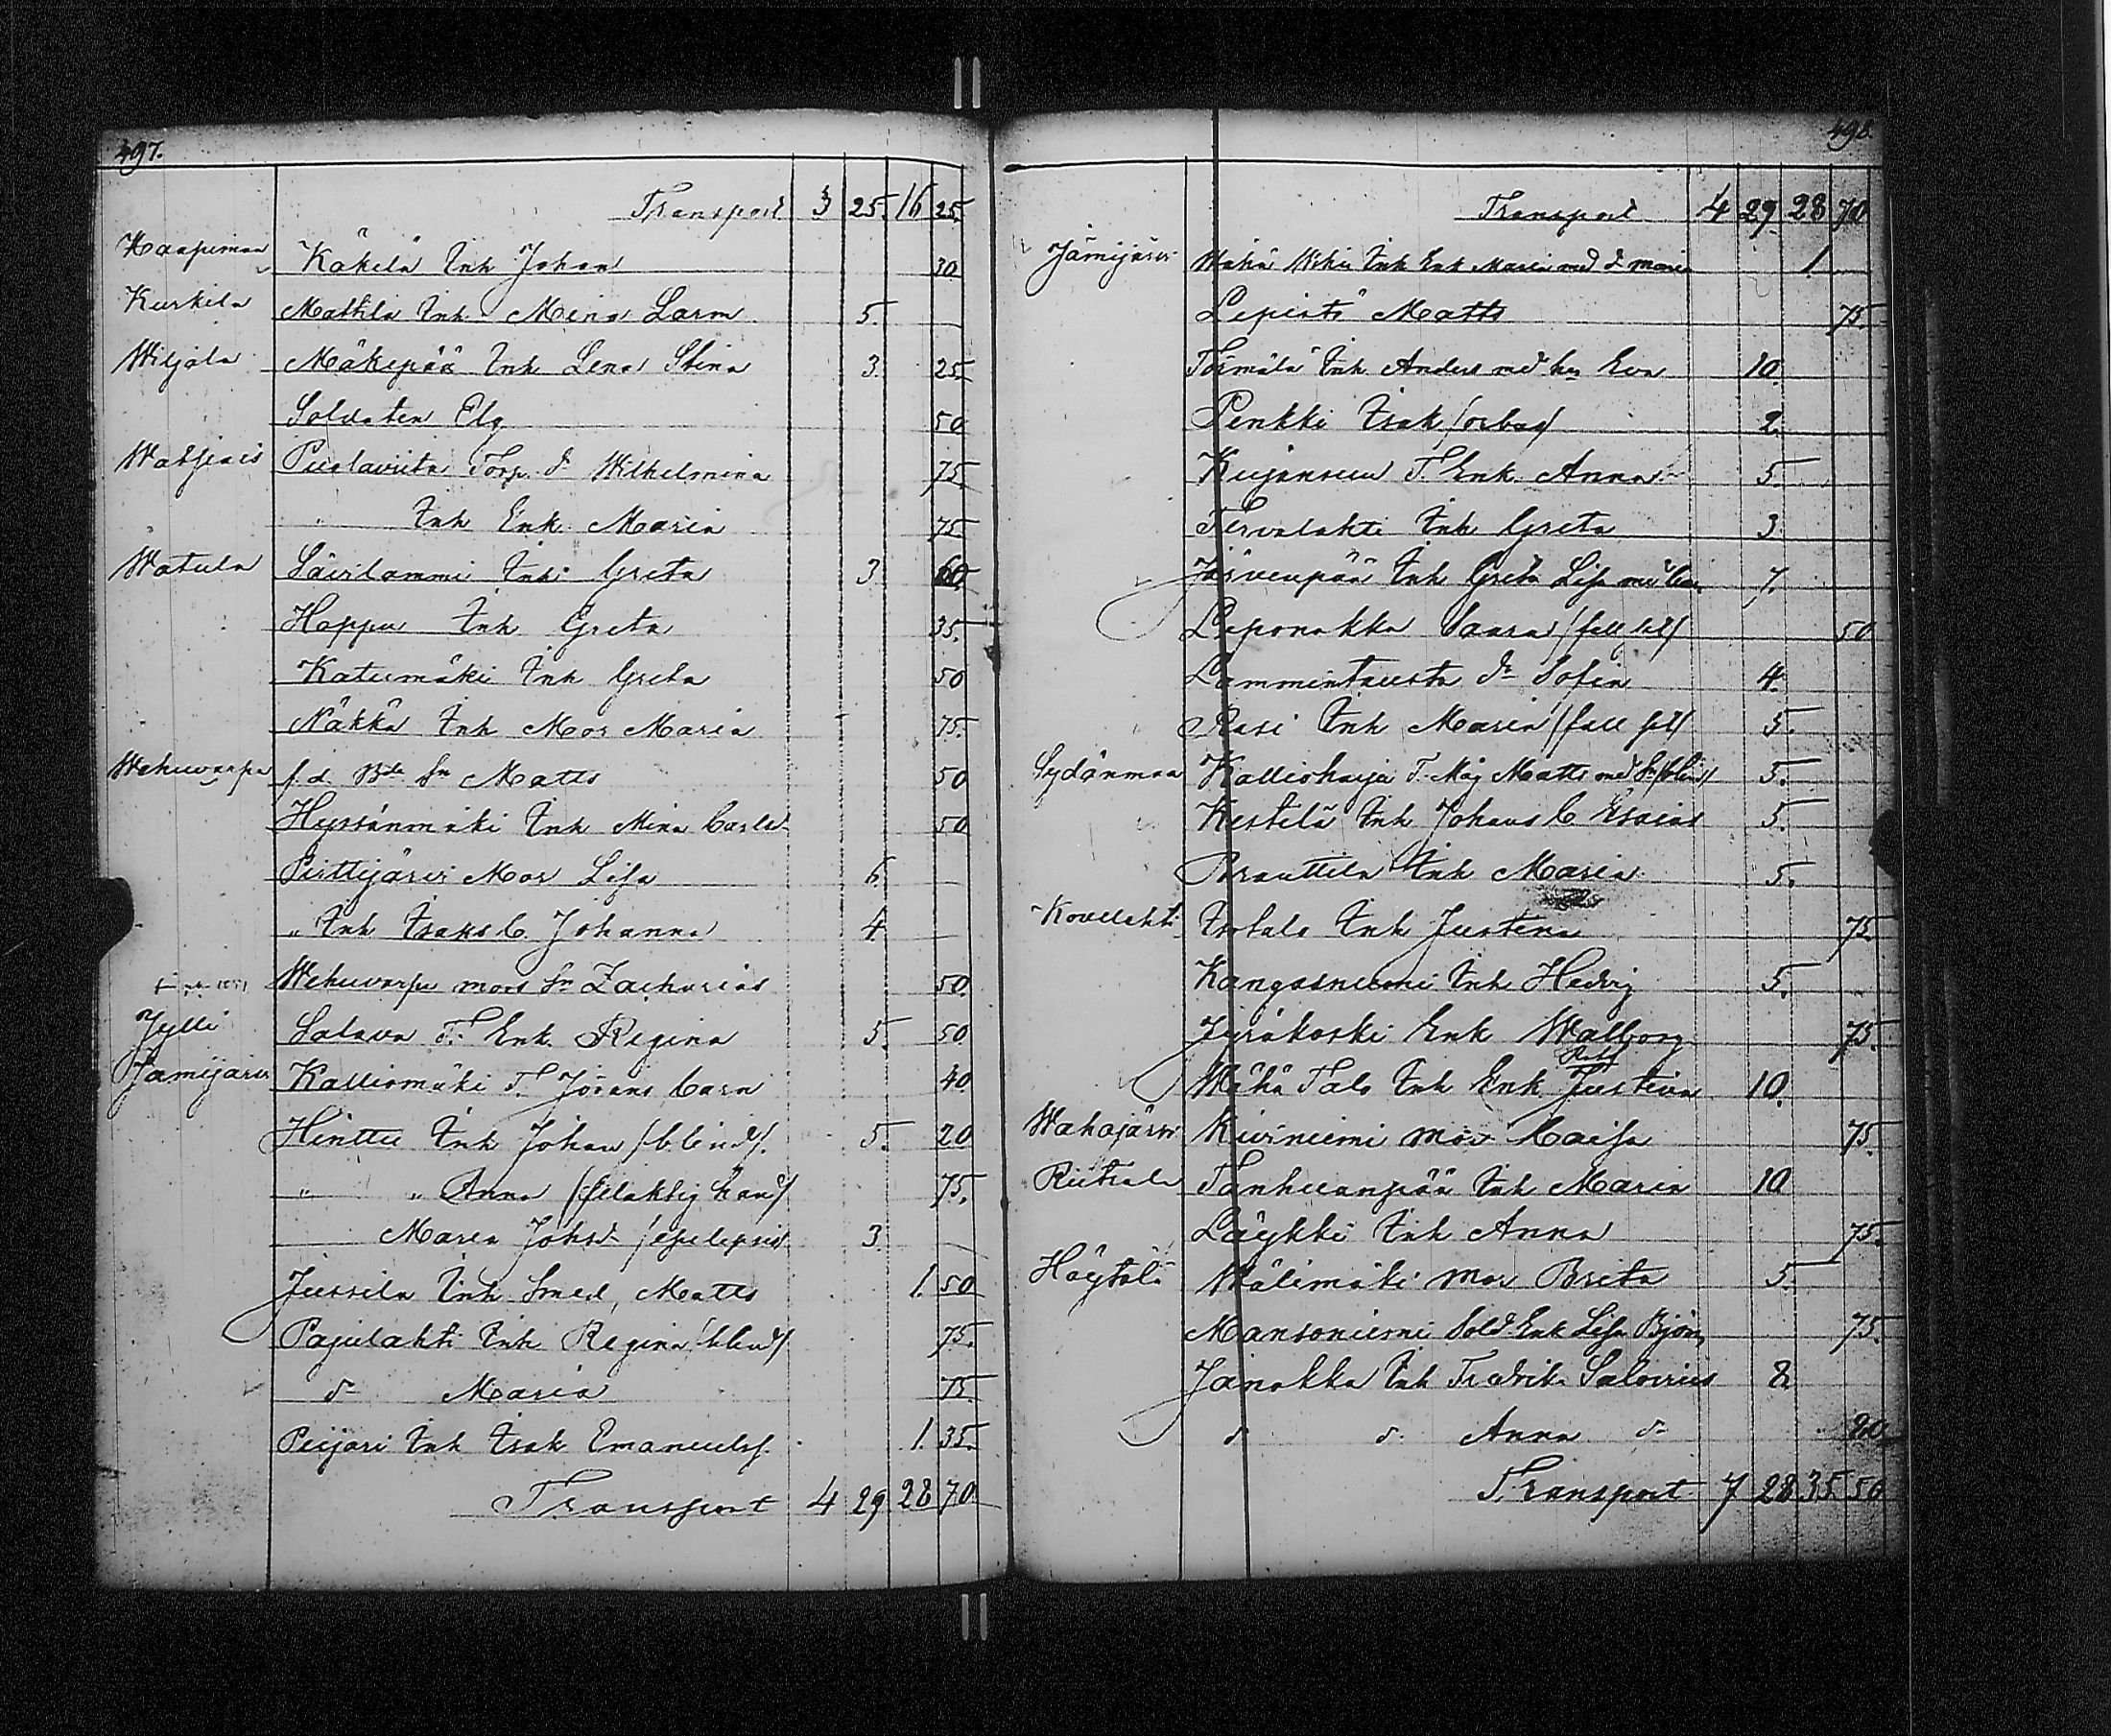 497.
Transport 3 25. 16 25.
Haapimaa Käkelä Inh Johan 30
Kurkela Mattila Inh Mina Larm 5.
Wiljala Mäkipää Inh Lena Stina 3. 25.
Soldaten Elg 50
Watsiais Puolavuta Torp. d. Wilhelmina 75.
" Inh Enk. Maria 75.
Watula Säirlammi Inh Greta 3. 60.
Hoppu Inh Greta 35.
Katumäki Inh Greta 50
Näkkä Inh Mor Maria 75.
Wehuvarpe f.d. Bde Sn Matts 50
Hyssänmäki Inh Mina Carlsd. 50
Pirttijärvi Mor Lisa 6.
" Inh Isaks b. Johanna 4.
Wehuvarpe mors Sn Zacharias 50.
Jylli Salava T. Enk. Regina 5. 50
Jämijärvi Kalliomäki T. Jörans barn 40.
Hinttu Inh Johan /blind/. 5. 20
" " Anna /felaktig hand/ 75.
Maria Johsd. /epilepsie 3.
Jussila Inh Smed, Matts 1. 50
Pajulahti Inh Regina /blind/ 75.
d. Maria 75.
Peijari Inh Isak Emanuelss. 1. 35.
Transport 4 29. 28 70.
498.
Transport 4 29. 28 70
Jämijärvi Wähä Wihu Inh Enk Maria med d. Maria 1.
Lepistö Matts 75.
Törmälä Inh. Anders med hu Eva 10.
Penkki Isak 2.
Kujansuu T. Enk. Anna 5.
Tervalahti Inh Greta 3.
Järvenpää Inh Greta Lisa med 7.
Leponokka Saara /fall sot/ 50
Lammintausta dr Sofia 4.
Rasi Inh Maria /fall sot/ 5.
Sydänmaa Kallioharja T. Måg Matts med 5.
Kestilä Inh Johans b. Esaias 5.
Prauttila Inh Maria 5.
Kovelahti Isotalo Inh Justina 75.
Kangasniemi Inh Hedvig 5.
Jyräkoski Enk Walborg 75.
Wähä Talo Inh Enk Justina 10.
Wahojärvi Kiviniemi Mor Caisa 75.
Riitiala Tanhuanpää Inh Maria 10
Läykki Inh Anna 75.
Höytölä Wälimäki Mor Brita 5.
Mansoniemi Sold. Enk Lisa Björn 75.
Jänokka Inh Fredrik Salovius 8.
d d. Anna d. 20.
Transport 7 28 35. 50